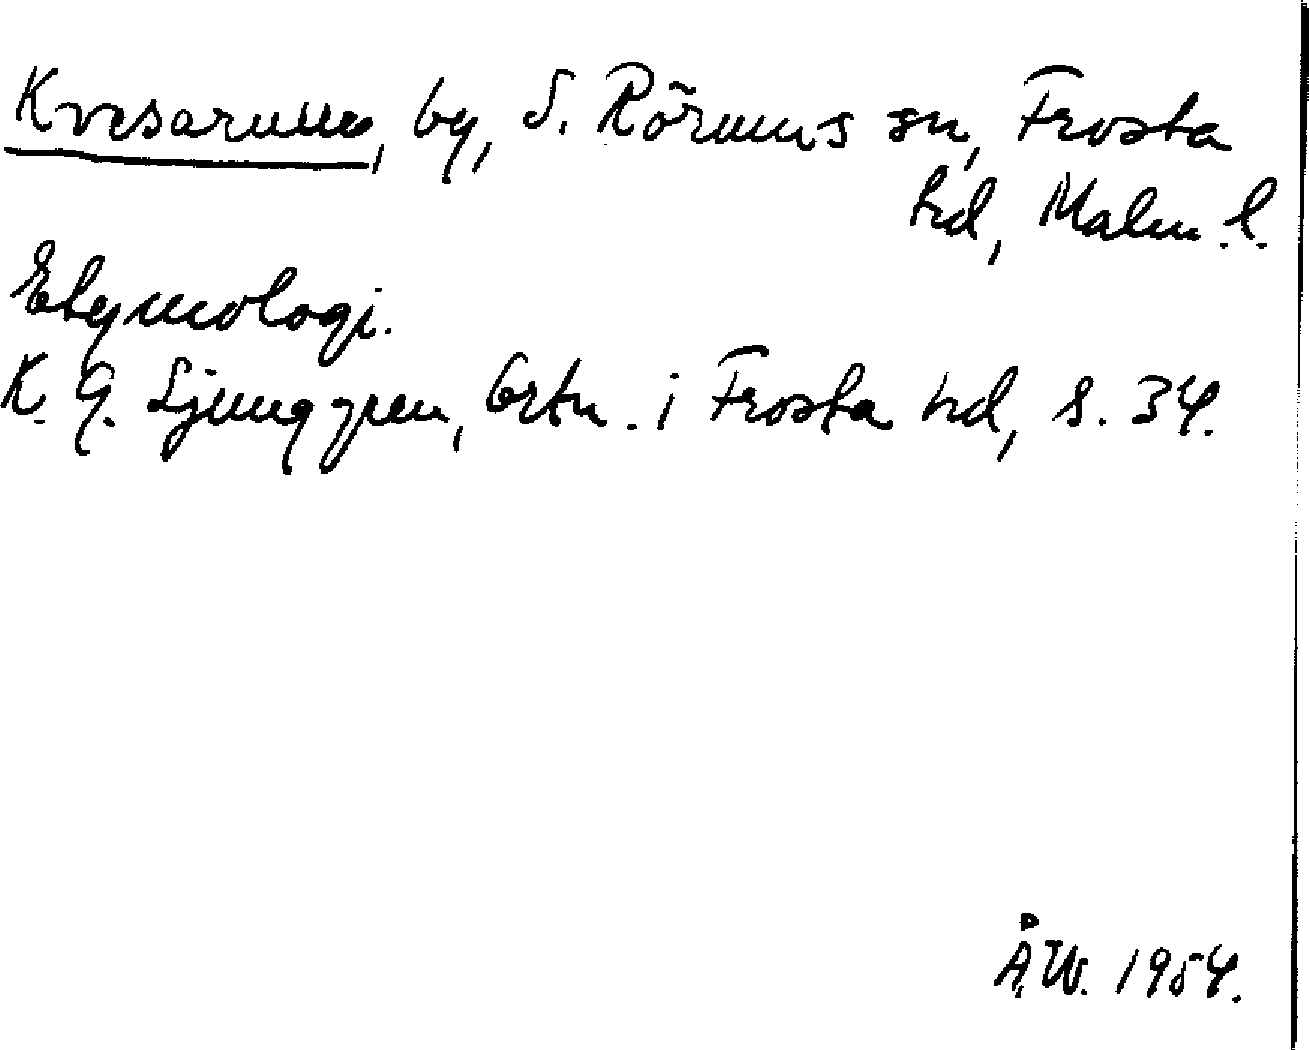 Kvesarum, by, S. Rörums sn, Frosta
hd, Malm. l.
Etymologi.
K. G. Ljunggren, Ortn. i Frosta hd, s. 34.
Å.W. 1954.